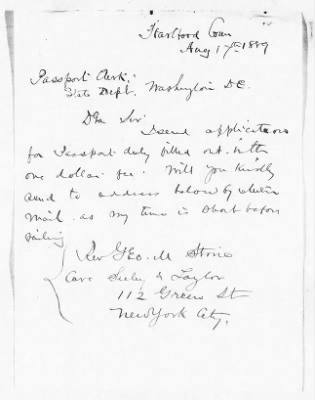 Hartford Conn
Aug 17th 1889
Passport Clerk,
State Dept. Washington D.C.
Dear Sir
I send application
for Passport duly filled out with
one dollar fee. Will you kindly
send to address below by return
mail as my time is short before
sailing
Rev Geo. M Stone
Care Seeley & Taylor
112 Green St
New York City,